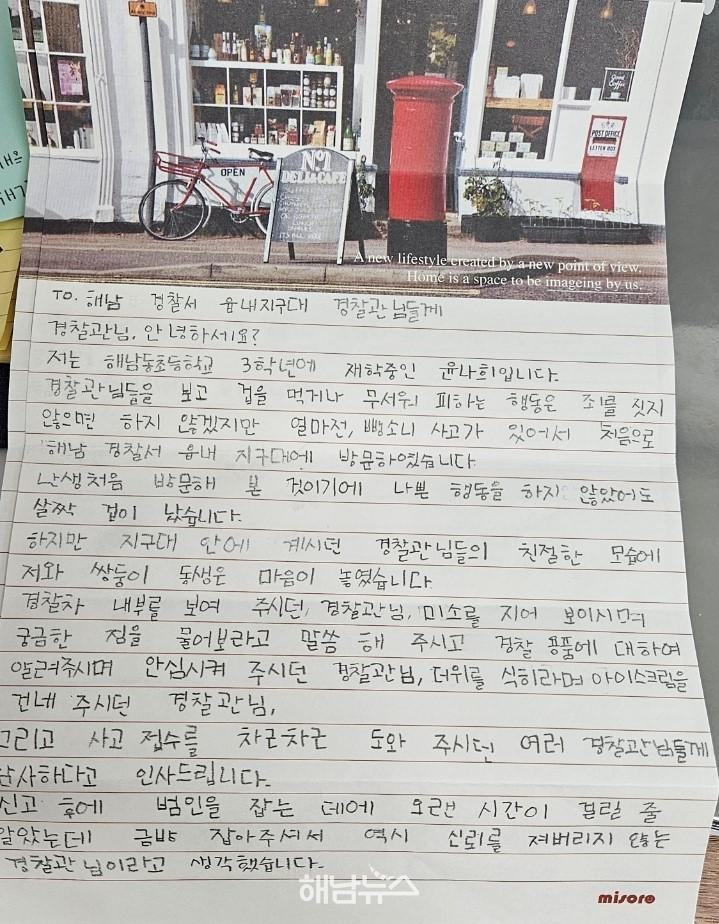 OPEN
Nº1
DELI & CAFE
LUNCH
POST OFFICE
LETTER BOX
A new lifestyle created by a new point of view.
Home is a space to be imageing by us.
TO. 해남 경찰서 읍내지구대 경찰관님들께
경찰관님, 안녕하세요?
저는 해남동초등학교 3학년에 재학중인 윤나희입니다.
경찰관님들을 보고 겁을 먹거나 무서워 피하는 행동은 죄를 짓지
않으면 하지 않겠지만 얼마전, 뺑소니 사고가 있어서 처음으로
해남 경찰서 읍내 지구대에 방문하였습니다.
난생처음 방문해 본 것이기에 나쁜 행동을 하지 않았어도
살짝 겁이 났습니다.
하지만 지구대 안에 계시던 경찰관님들의 친절한 모습에
저와 쌍둥이 동생은 마음이 놓였습니다.
경찰차 내부를 보여 주시던, 경찰관님, 미소를 지어 보이시며
궁금한 점을 물어보라고 말씀 해 주시고 경찰 용품에 대하여
알려주시며 안심시켜 주시던 경찰관님, 더위를 식히라며 아이스크림을
건네 주시던 경찰관님,
그리고 사고 접수를 차근차근 도와 주시던 여러 경찰관님들께
감사하다고 인사드립니다.
신고 후에 범인을 잡는 데에 오랜 시간이 걸릴 줄
알았는데 금방 잡아주셔서 역시 신뢰를 져버리지 않는
경찰관님이라고 생각했습니다.
해남뉴스
misoro